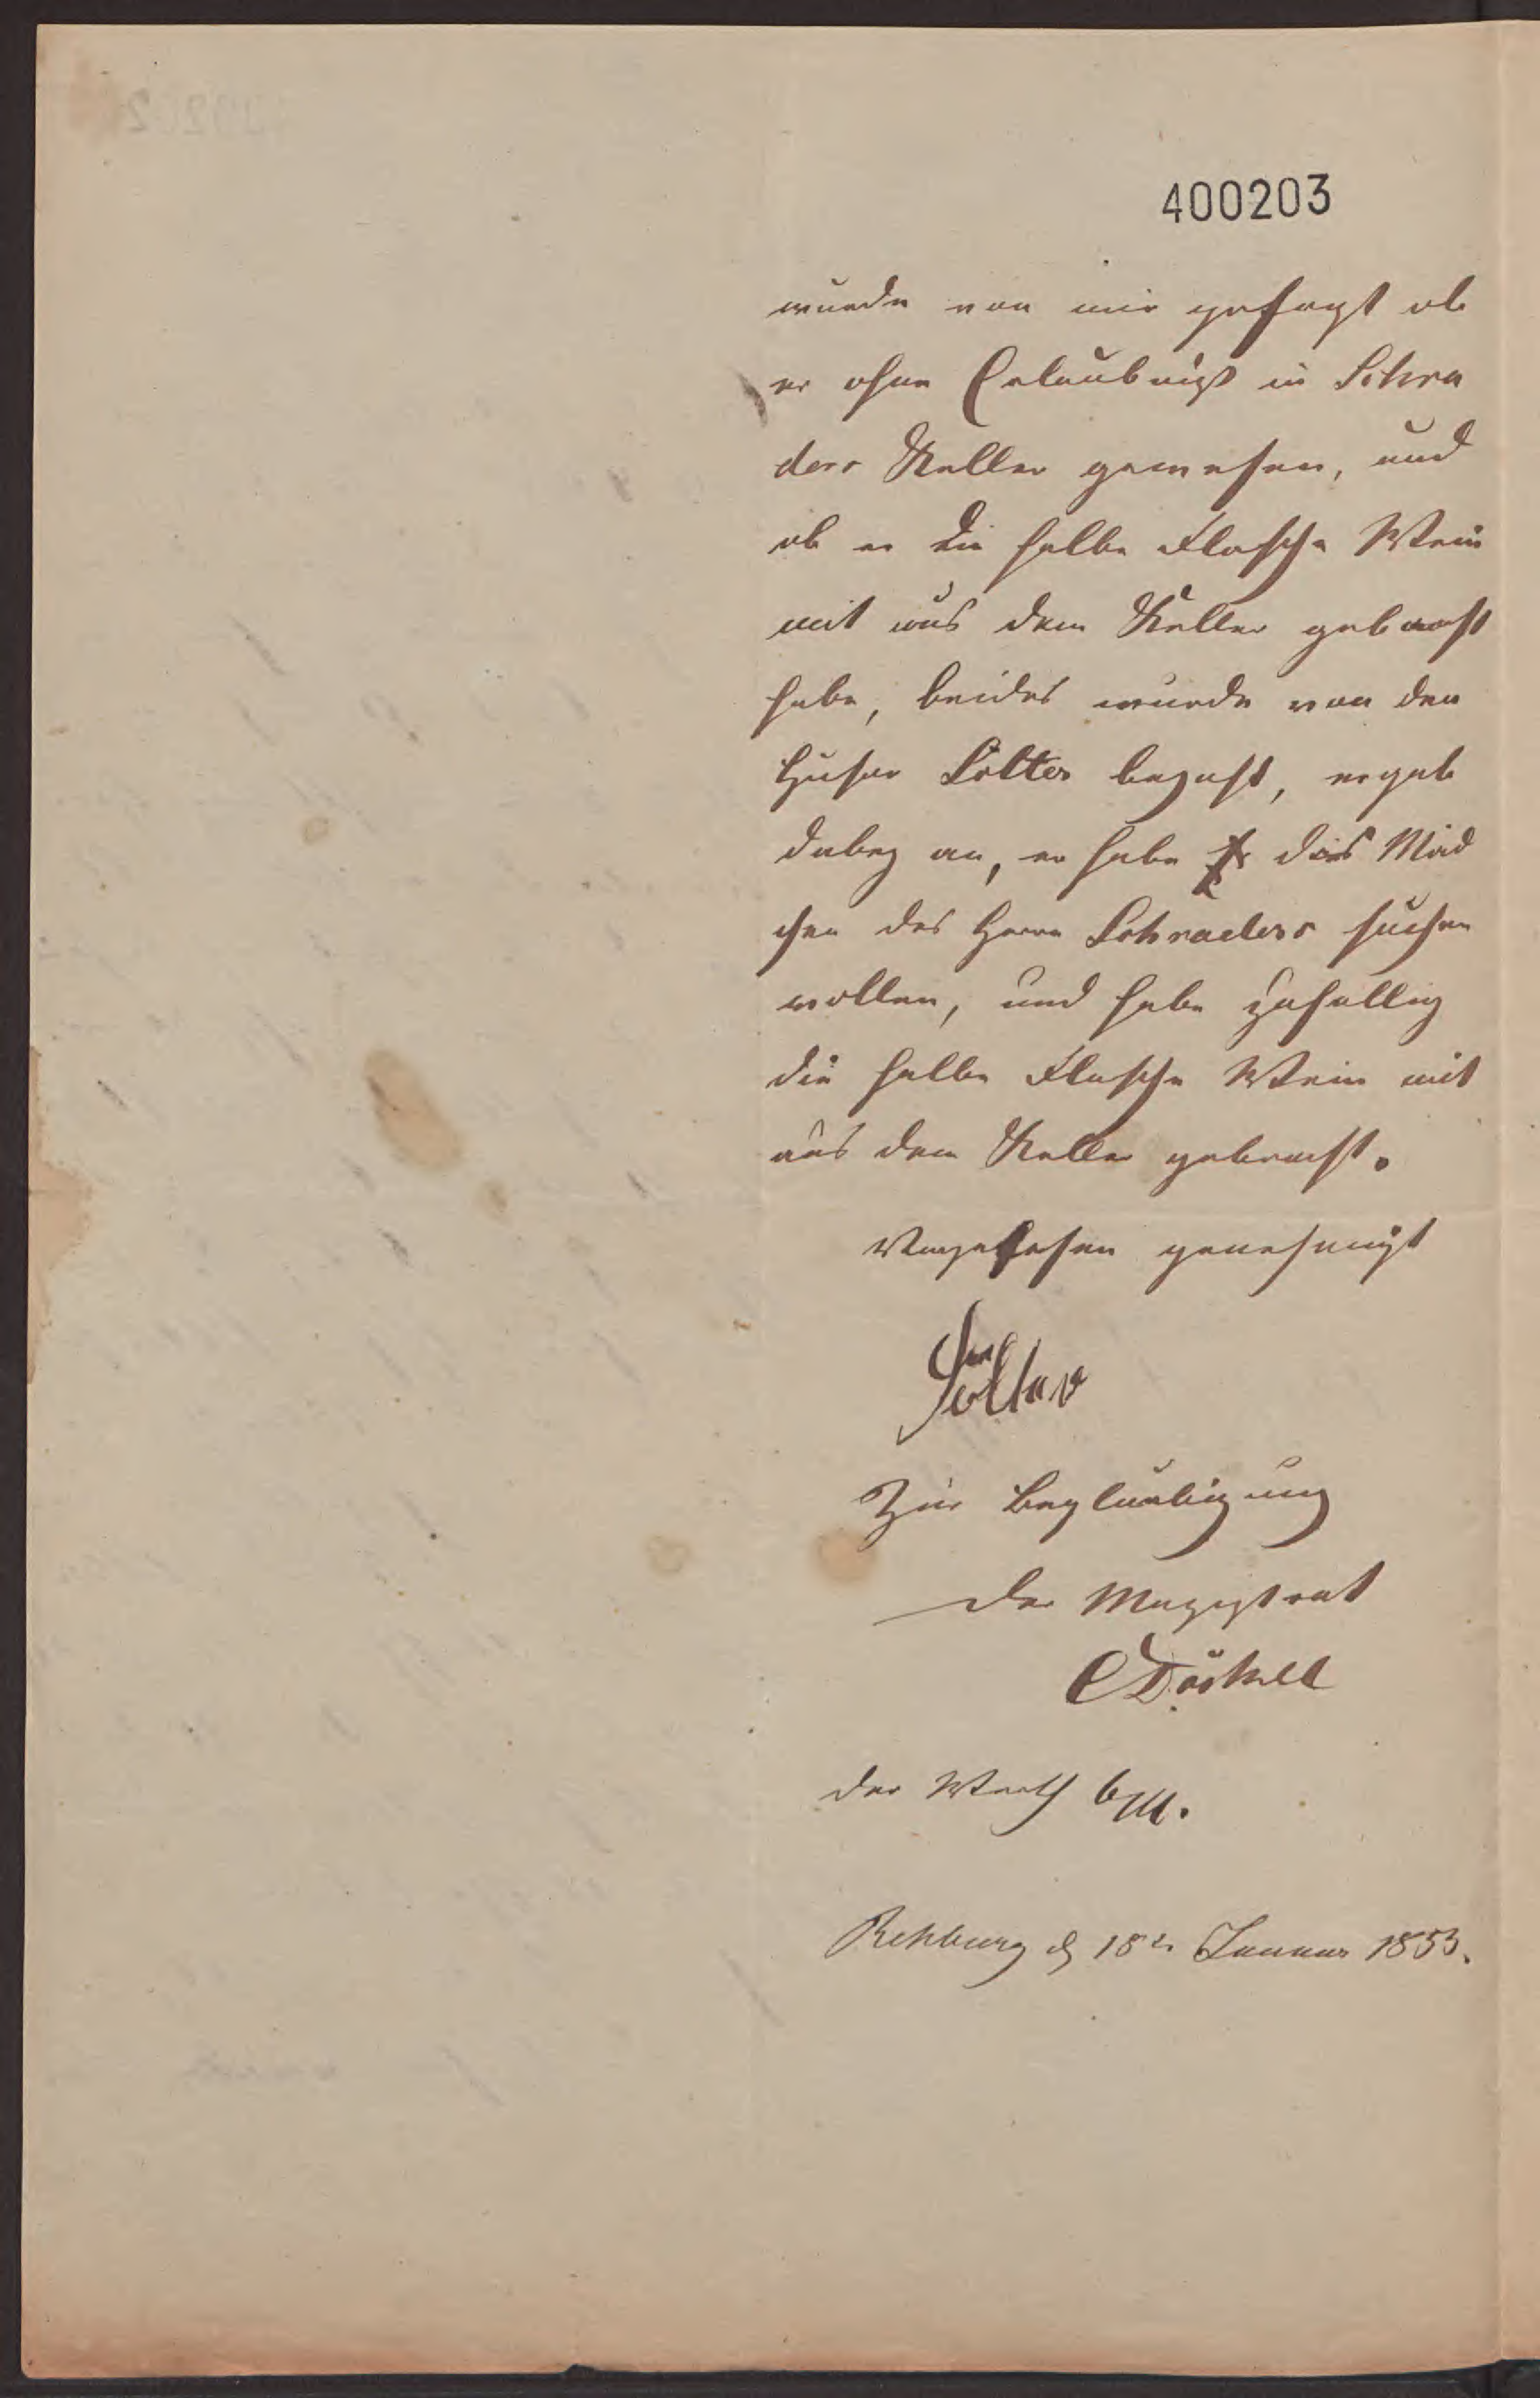 400203
wurde von mir gefragt ob
er ohne Erlaubniß in Schra
ders Keller gewesen, und
ob er die halbe Flasche Wein
mit aus dem Keller gebracht
habe, beides wurde von den
Husar Sölter bejaht, er gab
dabey an, er habe das Mäd
chen des Herrn Schraders suchen
wollen, und habe zufällig
die halbe Flasche Wein mit
aus dem Keller gebracht.
Vorgelesen genehmigt
Sölter
Zur Beglaubigung
Der Magistrat
der Werth 6
Rehburg d 18t Januar 1853.